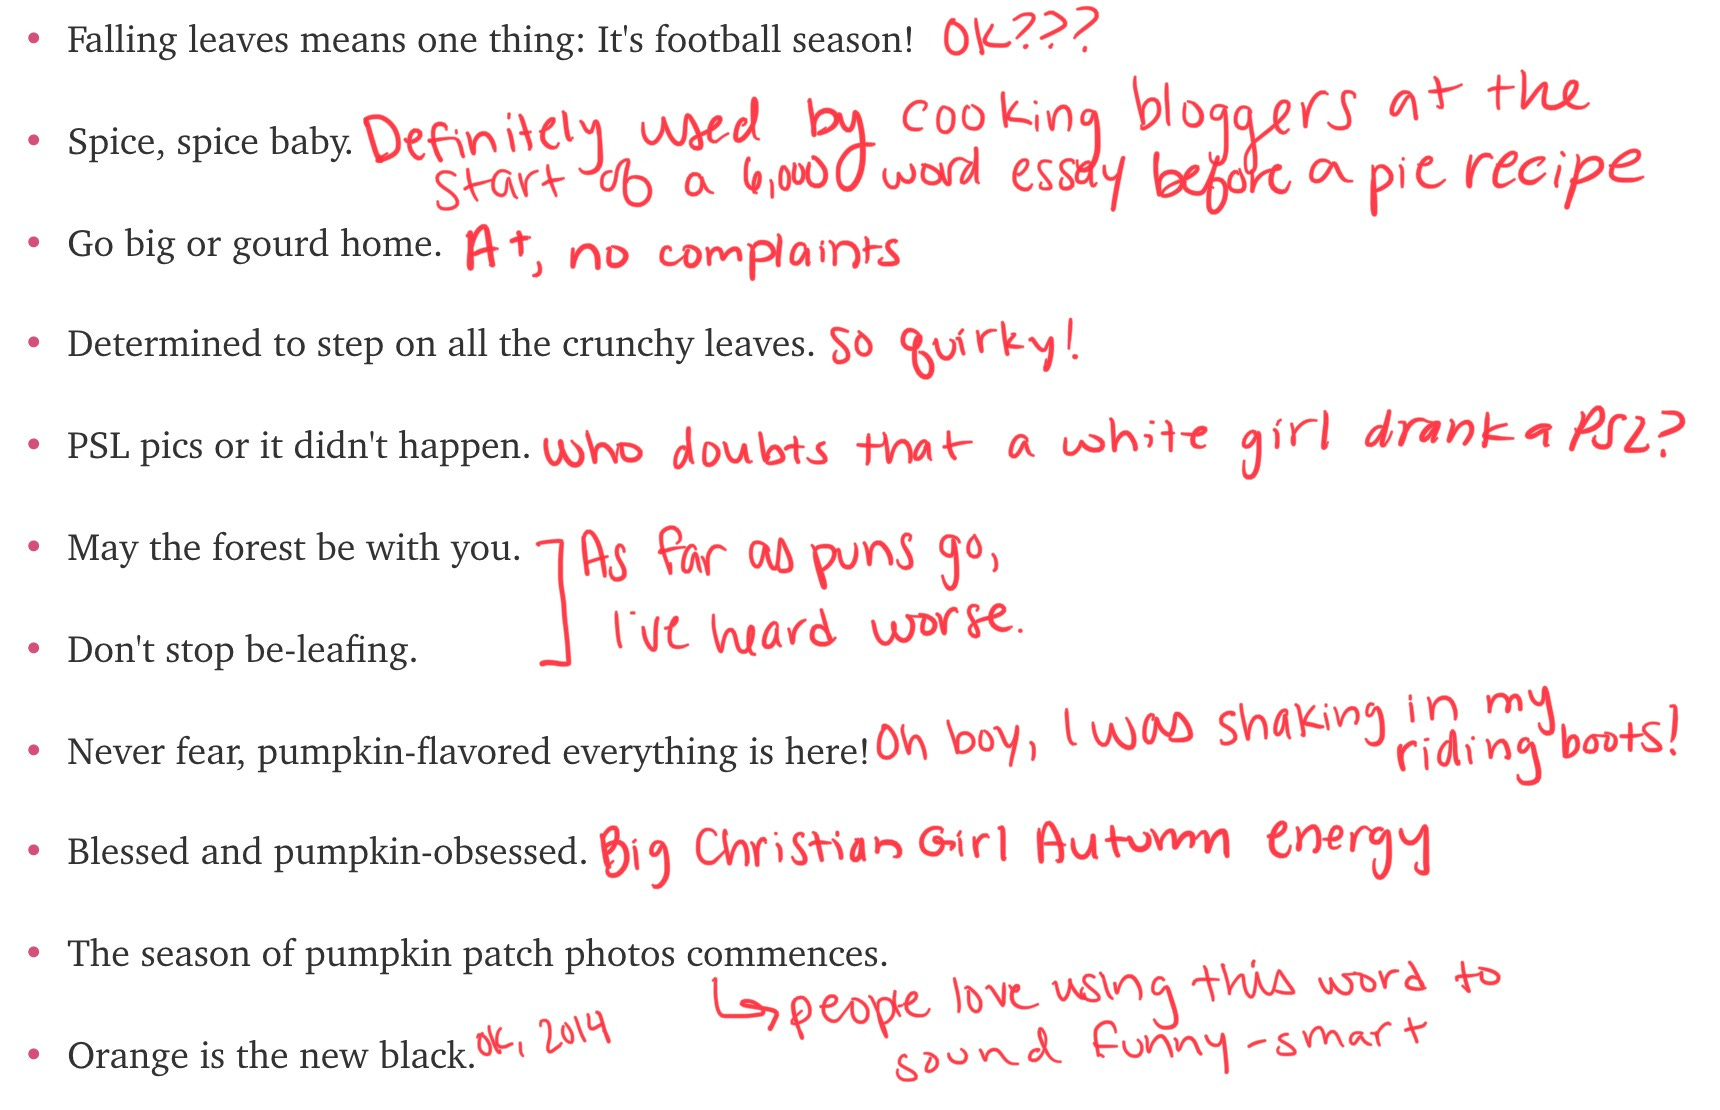 • Falling leaves means one thing: It's football season! OK???
• Spice, spice baby. Definitely used by cooking bloggers at the
start of a 6,000 word essay before a pie recipe
• Go big or gourd home. A+, no complaints
• Determined to step on all the crunchy leaves. so quirky!
• PSL pics or it didn't happen. who doubts that a white girl drank a PSL?
• May the forest be with you. As far as puns go,
I've heard worse.
• Don't stop be-leafing.
• Never fear, pumpkin-flavored everything is here! Oh boy, I was shaking in my
riding boots!
• Blessed and pumpkin-obsessed. Big Christian Girl Autumn energy
• The season of pumpkin patch photos commences.
↳ people love using this word to
sound funny-smart
• Orange is the new black. OK, 2014